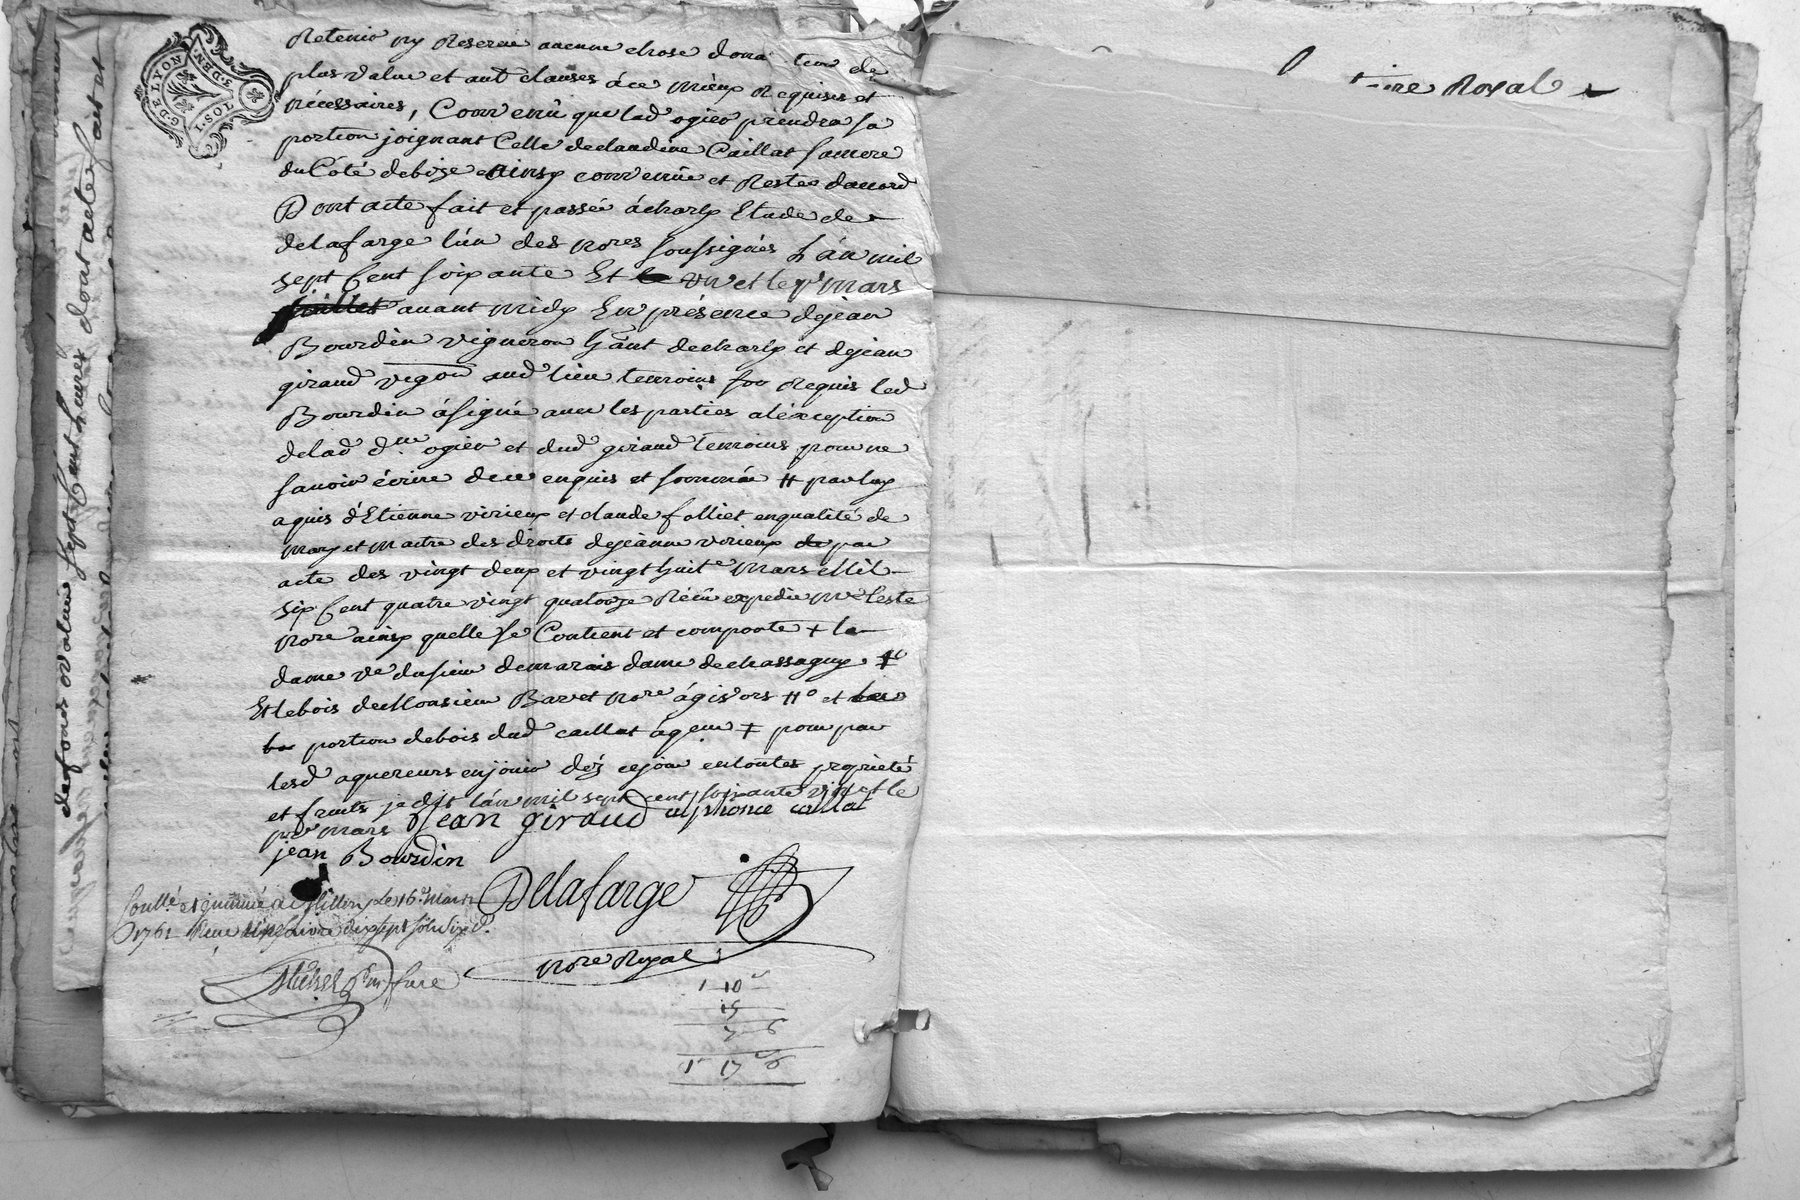 G. DE LYON
I. SOL. 3. DEN.
Retenir ny Reserver aucune chose donation de
plus value et autres clauses à ce mieux Requises et
nécessaires, Convenû que lad ogier prendra sa
portion joignant Celle declaudine Caillat sa mere
du Côté debize ainsy convenüe et Restés daccord
Dont acte fait et passé à charly Etude de
delafarge l'un des nores soussignés L'án mil
sept Cent soixante Et un et le pr mars
juillet avant midy En présence dejean
Bourdin vigneron hant decharly et dejean
giraud vigon aud lieu temoins Requis led
Bourdin á signé avec les parties aléxception
delad d. ogier et dud giraud temoins pour ne
savoir écrire dece enquis et sommés # par luy
aquis d'Etienne virieux et claude folliet enqualité de
mary et maitre des droits dejeanne virieux par
acte des vingt deux et vingt huit mars Mil
six Cent quatre vingt quatorze Récû expedié
nore ainsy quelle se Contient et comporte + la
dame ve dusieur demarais dame dechassagny
Et lebois deMonsieur Baret nore ágivors # et
portion debois dud caillat + pour par
lesd aquereurs enjouir dés cejour entoutes propriété
et fruits jedis lán mil sept cent soixante un et le
pr mars Jean giraud alphonce caillat
jean Bourdin
Delafarge
Conllé et insinué à Millery Le 16 Mars
1761 Receu Une Livre dix sept sols six d.
nore Royal
Michel
1 10
15
7 6
1 17 6
defonds valeur sept Cent Livres dont acte fait et
re Royal